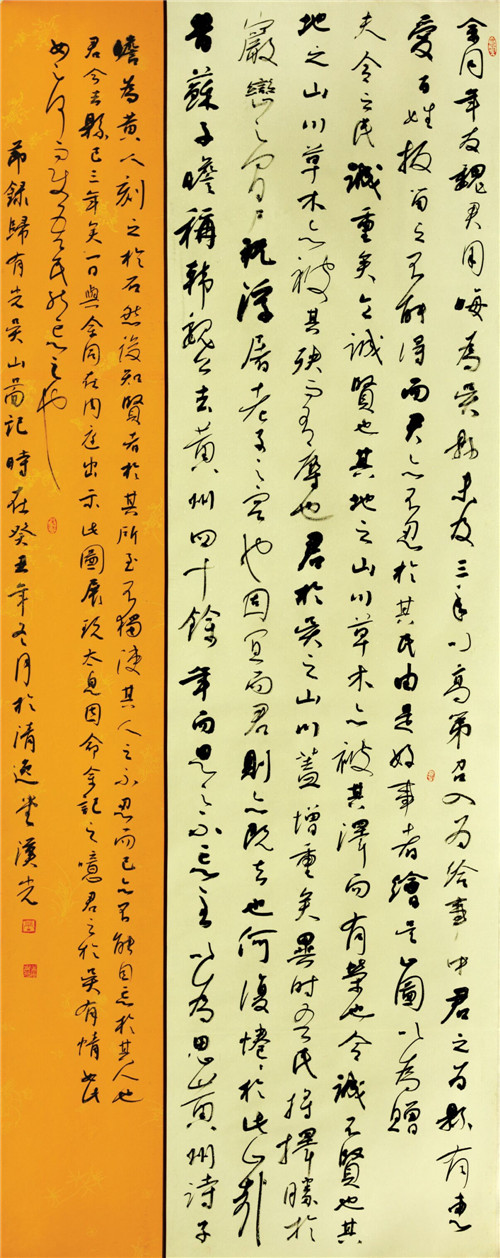 余同年友魏君用晦為吳縣未及三年以高第召入為給事中君之為縣有惠
愛百姓扳留之不能得而君亦不忍於其民由是好事者繪吳山圖以為贈
夫令之民誠重矣令誠賢也其地之山川草木亦被其澤而有榮也令誠不賢也其
地之山川草木亦被其殃而有辱也君於吳之山川蓋增重矣異時吾民將擇勝於
巖巒之間尸祝浮屠老子之宮也固宜而君則亦既去也何復惓惓於此山哉
昔蘇子瞻稱韓魏公去黃州四十餘年而思之不忘至以為思黃州詩子
瞻為黃人刻之於石然後知賢者於其所至不獨使其人之不忍而已亦不能自忘於其人也
君今去縣已三年矣一日與余同在內庭出示此圖展玩太息因命余記之噫君之於吳有情如此
如之何而使吾民能忘之也
節錄歸有光吳山圖記時在癸丑年冬月於清逸堂漢光